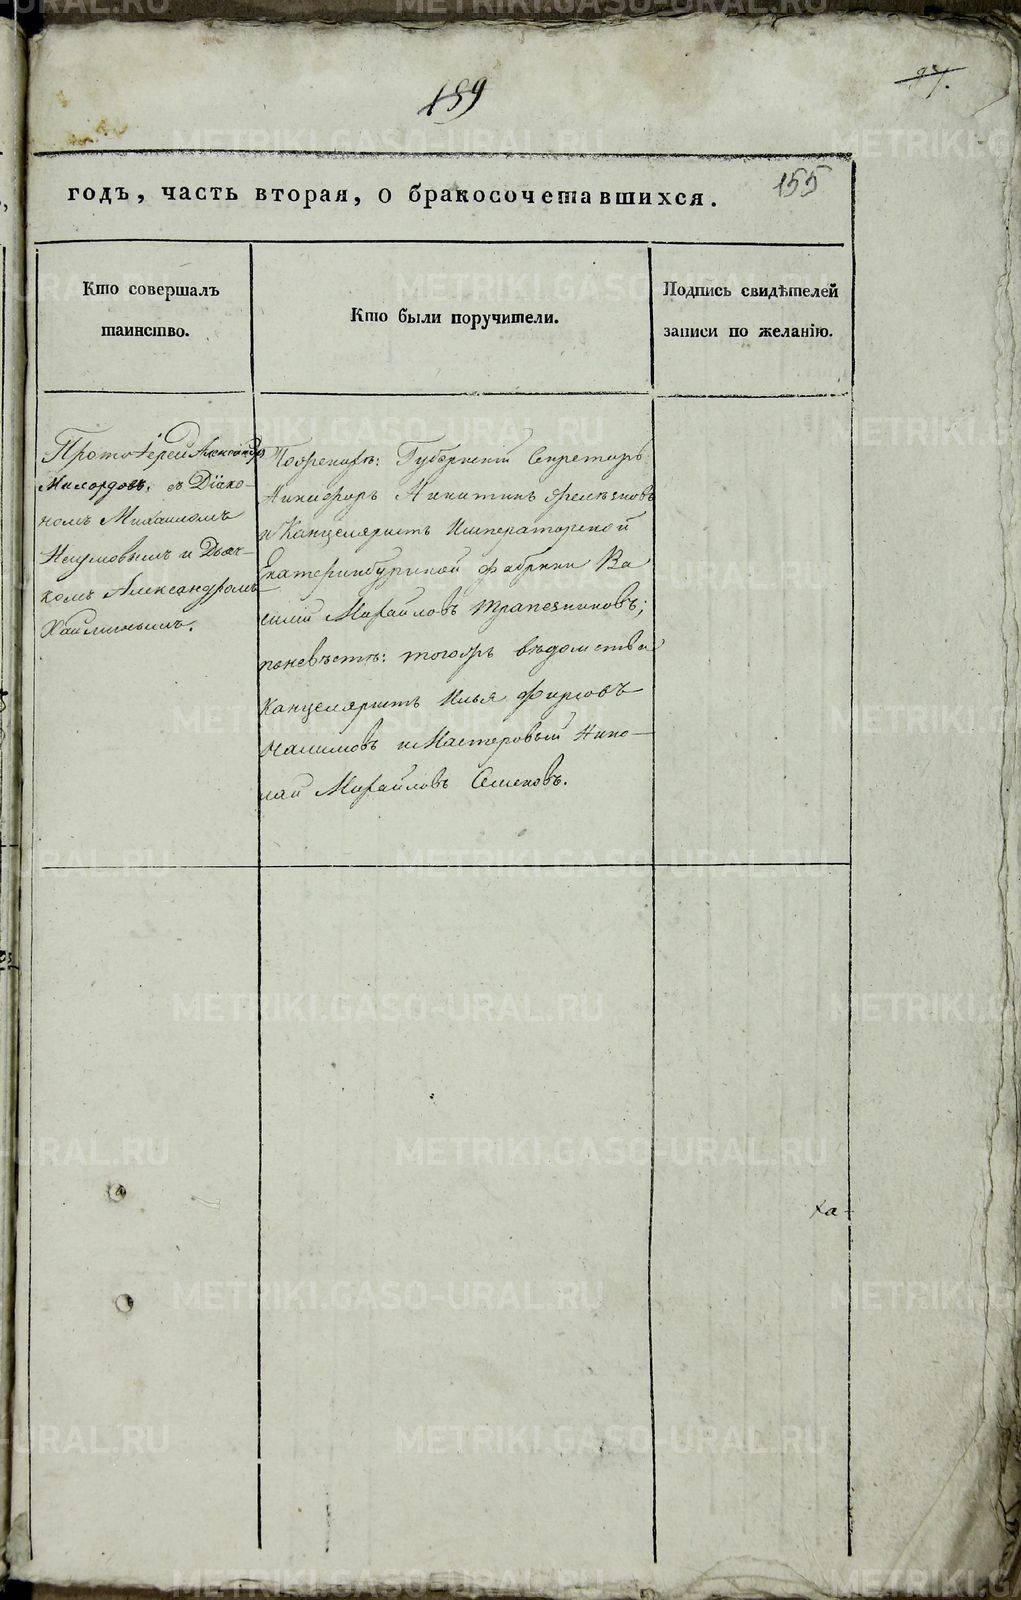 189
97.
155
годъ, часть вторая, о бракосочетавшихся.
Кто совершалъ
таинство.
Кто были поручители.
Подпись свидѣтелей
записи по желанію.
Протоіерей Александръ
Милордовъ, съ Діако-
номъ Михаиломъ
Наумовымъ и Дьяч-
комъ Александромъ
Хайминымъ.
Пожениxѣ: Губернскій Секретарь
Никифоръ Никитинъ Железновъ
и Канцеляристъ Императорской
Екатеринбургской фабрики Ва
силій Михайловъ Трапезниковъ;
поневѣстѣ: тогожъ вѣдомства
Канцеляристъ Илья Фирсовъ
Налимовъ и Мастеровый Нико-
лай Михайловъ Семеновъ.
ха-
METRIKI.GASO-URAL.RU